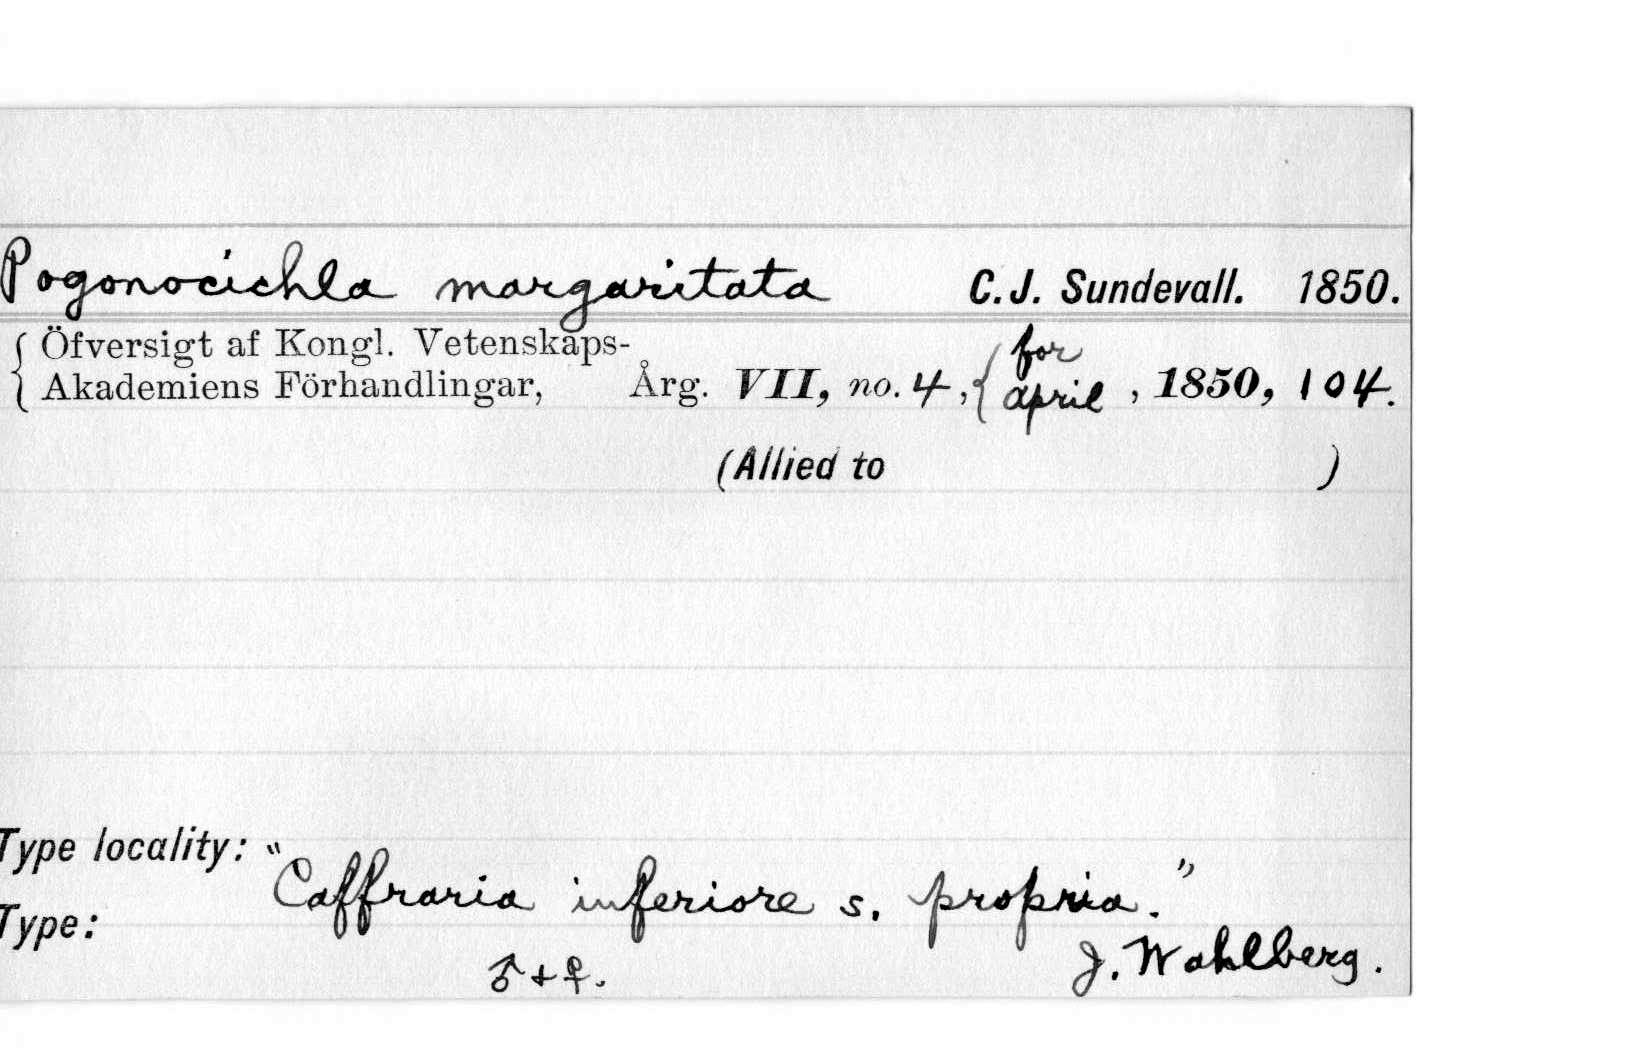 Pogonocichla margaritata C.J. Sundevall. 1850.
{ Öfversigt af Kongl. Vetenskaps-
Akademiens Förhandlingar, Årg. VII, no. 4, { for april, 1850, 104.
(Allied to )
Type locality: "Caffraria inferiore s. propria."
Type: ♂ + ♀. J. Wahlberg.